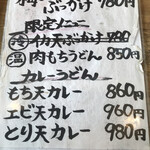 ぶっかけ 980円
限定メニュー
冷 イカ天ぶっかけ 780
温 肉もちうどん 850円
カレーうどん
もち天カレー 860円
エビ天カレー 960円
とり天カレー 980円